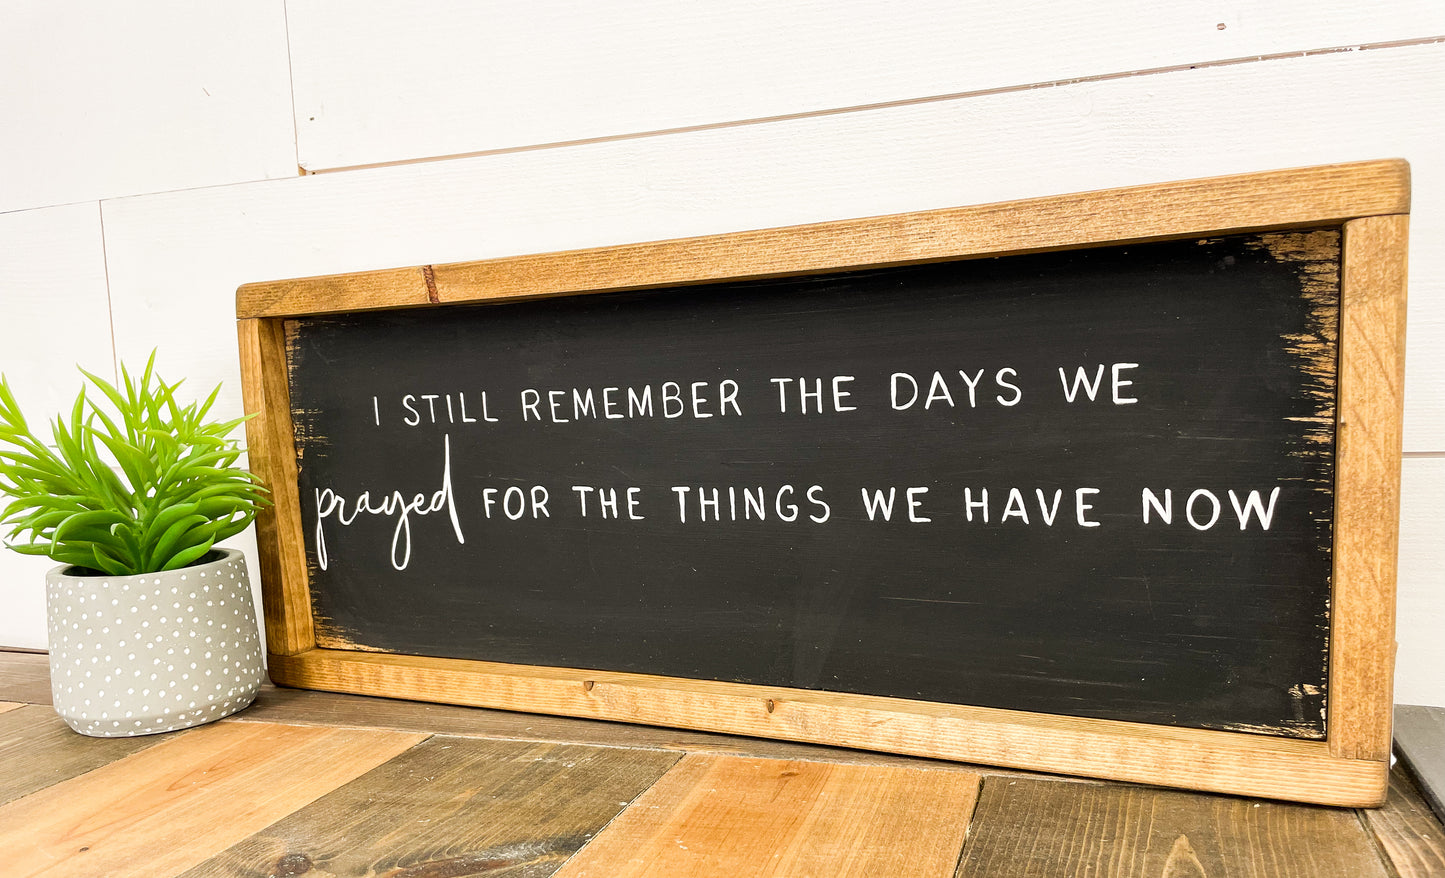 I STILL REMEMBER THE DAYS WE
prayed FOR THE THINGS WE HAVE NOW